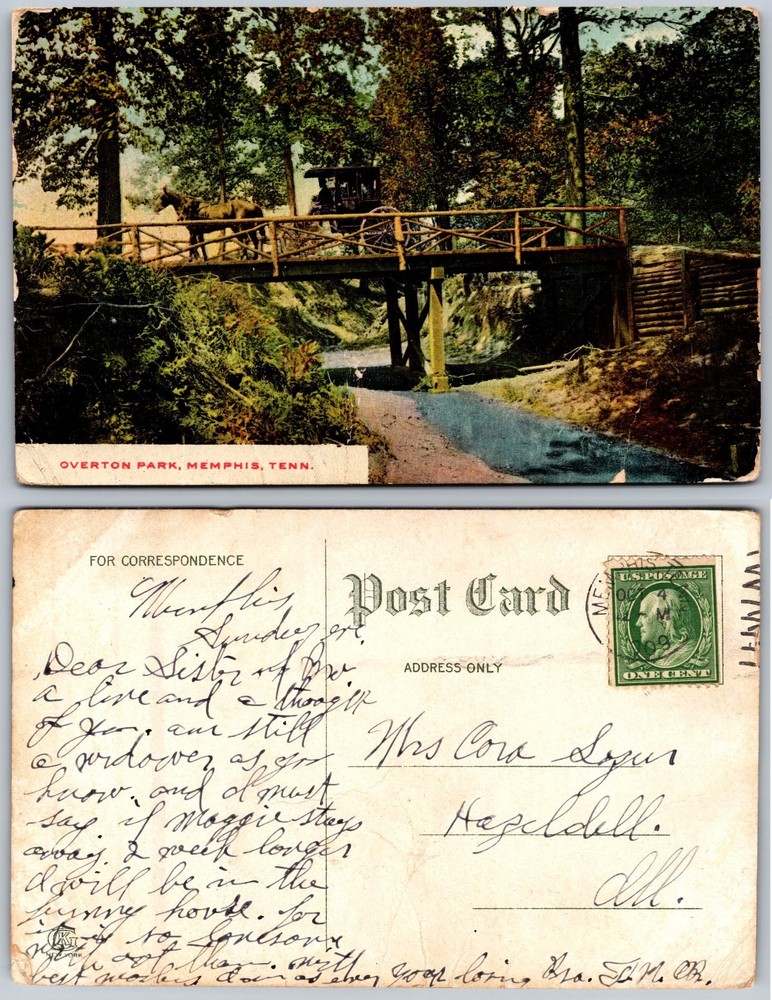 OVERTON PARK, MEMPHIS, TENN.
FOR CORRESPONDENCE
Post Card
ADDRESS ONLY
MEMPHIS
OCT 4
M
1909
U.S. POSTAGE
ONE CENT
Memphis
Sunday eve.
Dear Sister & Bro
a line and a thought
of you. am still
a widower as you
know. and I must
say if Maggie stays
away 2 week longer
I will be in the
funny house. for
it is so lonesom
with out them. with
best wishes I am as ever your loving Bro.
NEW YORK
Mrs Cora
Hazeldell.
Ill.